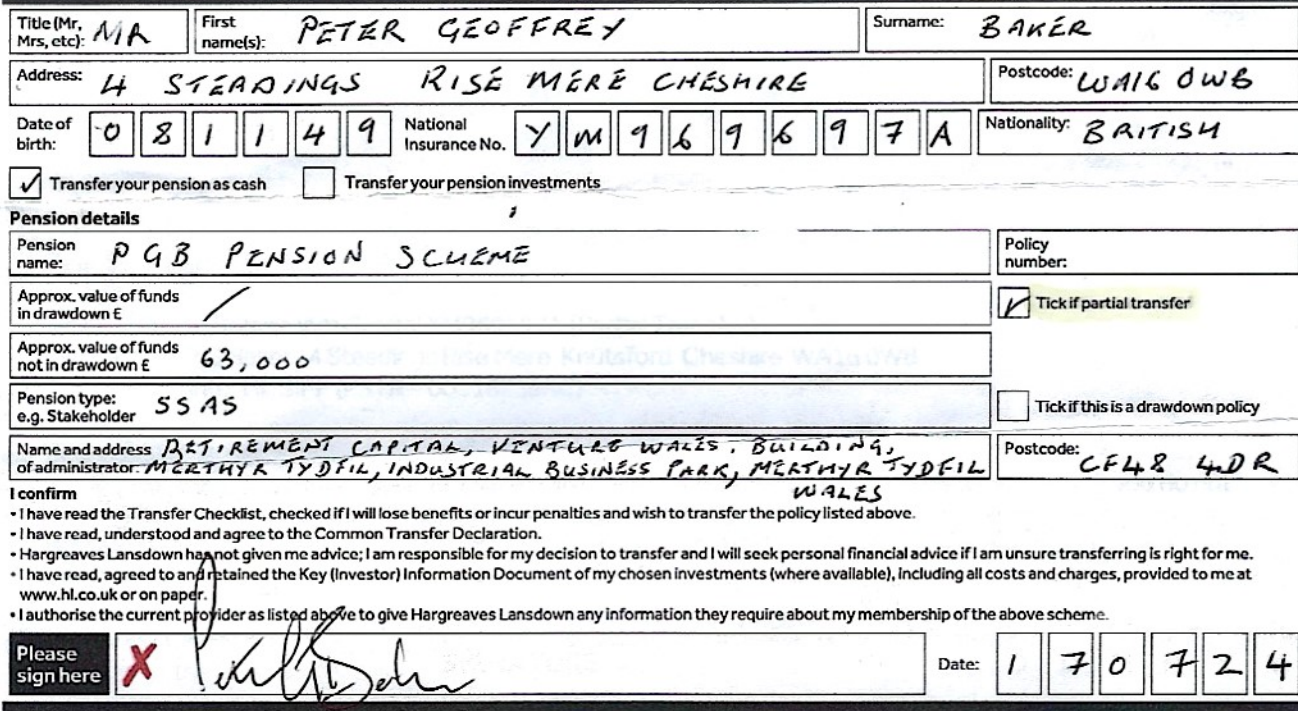 Title (Mr, Mrs, etc): MR First name(s): PETER GEOFFREY Surname: BAKER
Address: 4 STEADINGS RISE MERE CHESHIRE Postcode: WA16 0WB
Date of birth: 0 8 1 1 4 9 National Insurance No. Y M 9 6 9 6 9 7 A Nationality: BRITISH
✓ Transfer your pension as cash Transfer your pension investments
Pension details
Pension name: PGB PENSION SCHEME Policy number:
Approx. value of funds in drawdown £ / ✓ Tick if partial transfer
Approx. value of funds not in drawdown £ 63,000
Pension type: e.g. Stakeholder SSAS Tick if this is a drawdown policy
Name and address of administrator: RETIREMENT CAPITAL, VENTURE WALES. BUILDING,
MERTHYR TYDFIL, INDUSTRIAL BUSINESS PARK, MERTHYR TYDFIL
WALES Postcode: CF48 4DR
I confirm
• I have read the Transfer Checklist, checked if I will lose benefits or incur penalties and wish to transfer the policy listed above.
• I have read, understood and agree to the Common Transfer Declaration.
• Hargreaves Lansdown has not given me advice; I am responsible for my decision to transfer and I will seek personal financial advice if I am unsure transferring is right for me.
• I have read, agreed to and retained the Key (Investor) Information Document of my chosen investments (where available), including all costs and charges, provided to me at
www.hl.co.uk or on paper.
• I authorise the current provider as listed above to give Hargreaves Lansdown any information they require about my membership of the above scheme.
Please sign here X Date: 1 7 0 7 2 4